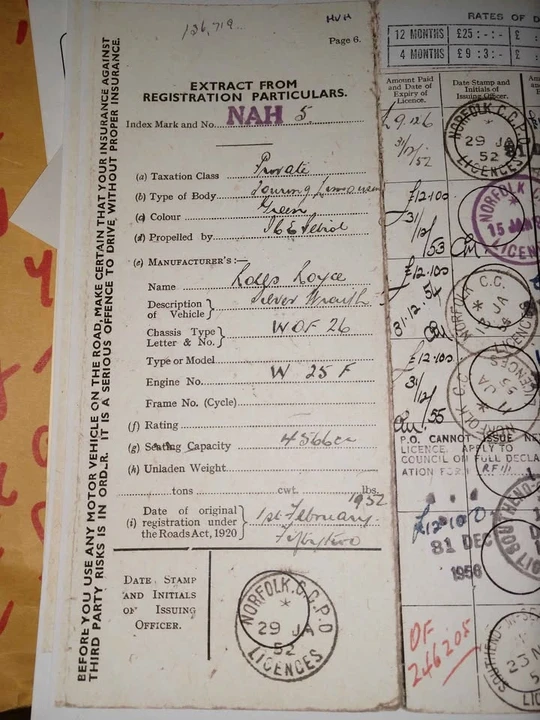 136,719
HVH
Page 6.
EXTRACT FROM
REGISTRATION PARTICULARS.
Index Mark and No. NAH 5
(a) Taxation Class Private
(b) Type of Body Touring Limousine
(c) Colour Green
(d) Propelled by Petrol
(e) MANUFACTURER'S:—
Name Rolls Royce
Description of Vehicle } Silver Wraith
Chassis Type Letter & No. } WOF 26
Type or Model
Engine No. W 25 F
Frame No. (Cycle)
(f) Rating
(g) Seating Capacity 4566cc
(h) Unladen Weight
tons cwt. lbs.
1952
Date of original
(i) registration under
the Roads Act, 1920 } 1st February
Fifty two
DATE STAMP
AND INITIALS
OF ISSUING
OFFICER.
NORFOLK.C.C.P.O
29 JA
52
LICENCES
BEFORE YOU USE ANY MOTOR VEHICLE ON THE ROAD, MAKE CERTAIN THAT YOUR INSURANCE AGAINST
THIRD PARTY RISKS IS IN ORDER. IT IS A SERIOUS OFFENCE TO DRIVE WITHOUT PROPER INSURANCE.
RATES OF D
12 MONTHS £25 :-:- £
4 MONTHS £9 :3:- £
Amount Paid
and Date of
Expiry of
Licence.
Date Stamp and
Initials of
Issuing Officer.
£9 12 6
31/12/52
NORFOLK.C.C.P.O
29 JA
52
LICENCES
£12·10·0
31/12/53
NORFOLK
15 JAN
LICENC
£12·10·0
31.12.54
NORFOLK C.C.
JA
LICENCES
£12·10·0
31/12/55
NORFOLK C.C.
JA
55
LICENCES
P.O. CANNOT ISSUE NE
LICENCE. APPLY TO
COUNCIL ON FULL DECLA
ATION FORM RF111
£12·10·0
31 DEC
1956
OF
246205
SOUTHEND
23
LIC